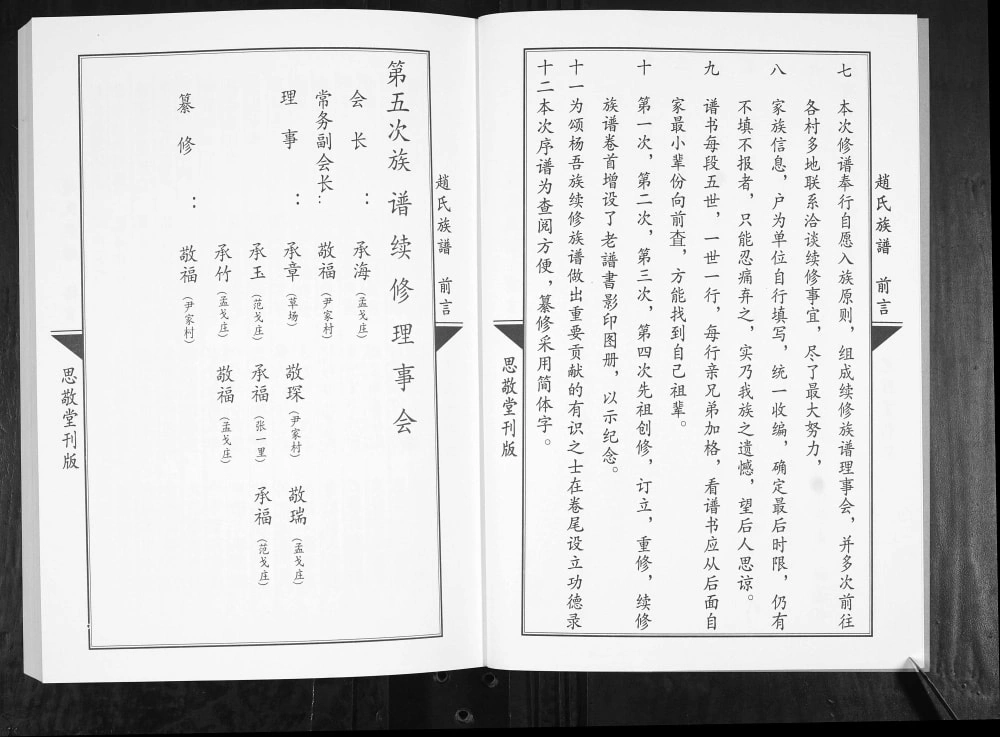 趙氏族譜 前言
七 本次修谱奉行自愿入族原则，组成续修族谱理事会，并多次前往
各村多地联系洽谈续修事宜，尽了最大努力，
八 家族信息，户为单位自行填写，统一收编，确定最后时限，仍有
不填不报者，只能忍痛弃之，实乃我族之遗憾，望后人思谅。
九 谱书每段五世，一世一行，每行亲兄弟加格，看谱书应从后面自
家最小辈份向前查，方能找到自己祖辈。
十 第一次，第二次，第三次，第四次先祖创修，订立，重修，续修
族谱卷首增设了老譜書影印图册，以示纪念。
十一为颂杨吾族续修族谱做出重要贡献的有识之士在卷尾设立功德录
十二本次序谱为查阅方便，纂修采用简体字。
思敬堂刊版
趙氏族譜 前言
第五次族谱续修理事会
会长：承海（孟戈庄）
常务副会长：敬福（尹家村）
理事：承章（草场） 敬琛（尹家村） 敬瑞（孟戈庄）
承玉（范戈庄） 承福（张一里） 承福（范戈庄）
承竹（孟戈庄） 敬福（孟戈庄）
纂修：敬福（尹家村）
思敬堂刊版